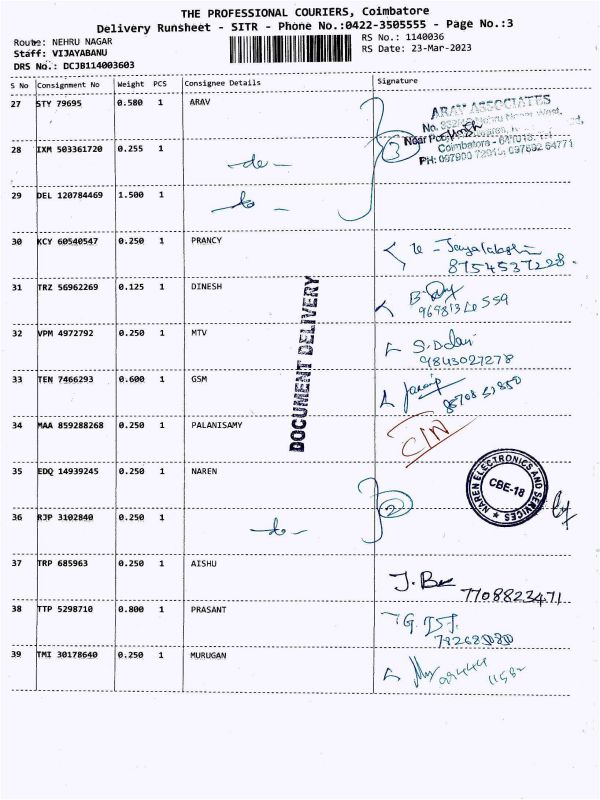 THE PROFESSIONAL COURIERS, Coimbatore
Delivery Runsheet - SITR - Phone No.:0422-3505555 - Page No.:3
Route: NEHRU NAGAR
RS No.: 1140036
Staff: VIJAYABANU
RS Date: 23-Mar-2023
DRS No.: DCJB114003603
S No Consignment No Weight PCS Consignee Details Signature
27 STY 79695 0.580 1 ARAV
ARAV ASSOCIATES
Coimbatore - 641014
28 IXM 503361720 0.255 1
3
29 DEL 120784469 1.500 1
30 KCY 60540547 0.250 1 PRANCY
8754537228
31 TRZ 56962269 0.125 1 DINESH
32 VPM 4972792 0.250 1 MTV
9843027278
33 TEN 7466293 0.600 1 GSM
DOCUMENT DELIVERY
34 MAA 859288268 0.250 1 PALANISAMY
CIN
35 EDQ 14939245 0.250 1 NAREN
NAREN ELECTRONICS AND SERVICES
CBE-18
36 RJP 3102840 0.250 1
2
37 TRP 685963 0.250 1 AISHU
7708823471
38 TTP 5298710 0.800 1 PRASANT
39 TMI 30178640 0.250 1 MURUGAN